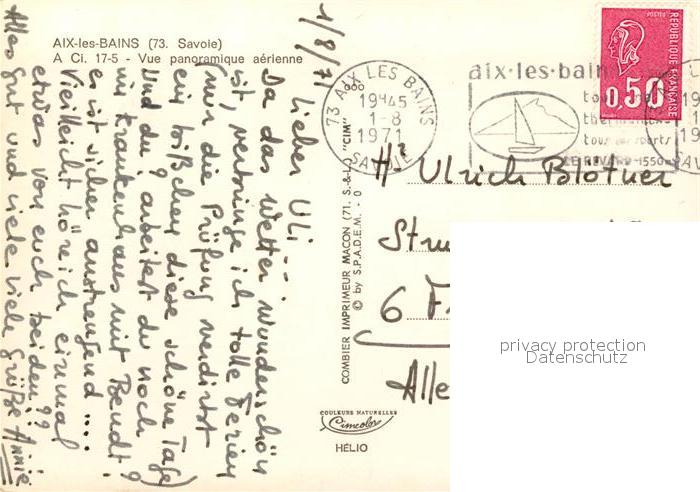 AIX-les-BAINS (73. Savoie)
A Ci. 17-5 - Vue panoramique aérienne
1/8/71
Lieber Uli...
Da das Wetter wunderschön
ist, verbringe ich tolle Ferien
(nur die Prüfung verdirbt
ein bißchen diese schöne Tage)
Und du? arbeitest du noch
im Krankenhaus mit Berndt?
es ist sicher anstrengend ....
Vielleicht höre ich einmal
etwas von euch beiden??
Alles gut und viele viele Grüße Annie
COMBIER IMPRIMEUR MACON (71. S.-&-L.) "CIM"
© by S.P.A.D.E.M. - 0
COULEURS NATURELLES
Cimcolor
HÉLIO
73 AIX LES BAINS
19H45
1-8
1971
SAVOIE
aix·les·bain
thermalisme
tous sports
LE REVARD-1550m
RÉPUBLIQUE FRANÇAISE
0,50
Hr Ulrich Blötner
6 F
Alle
privacy protection
Datenschutz